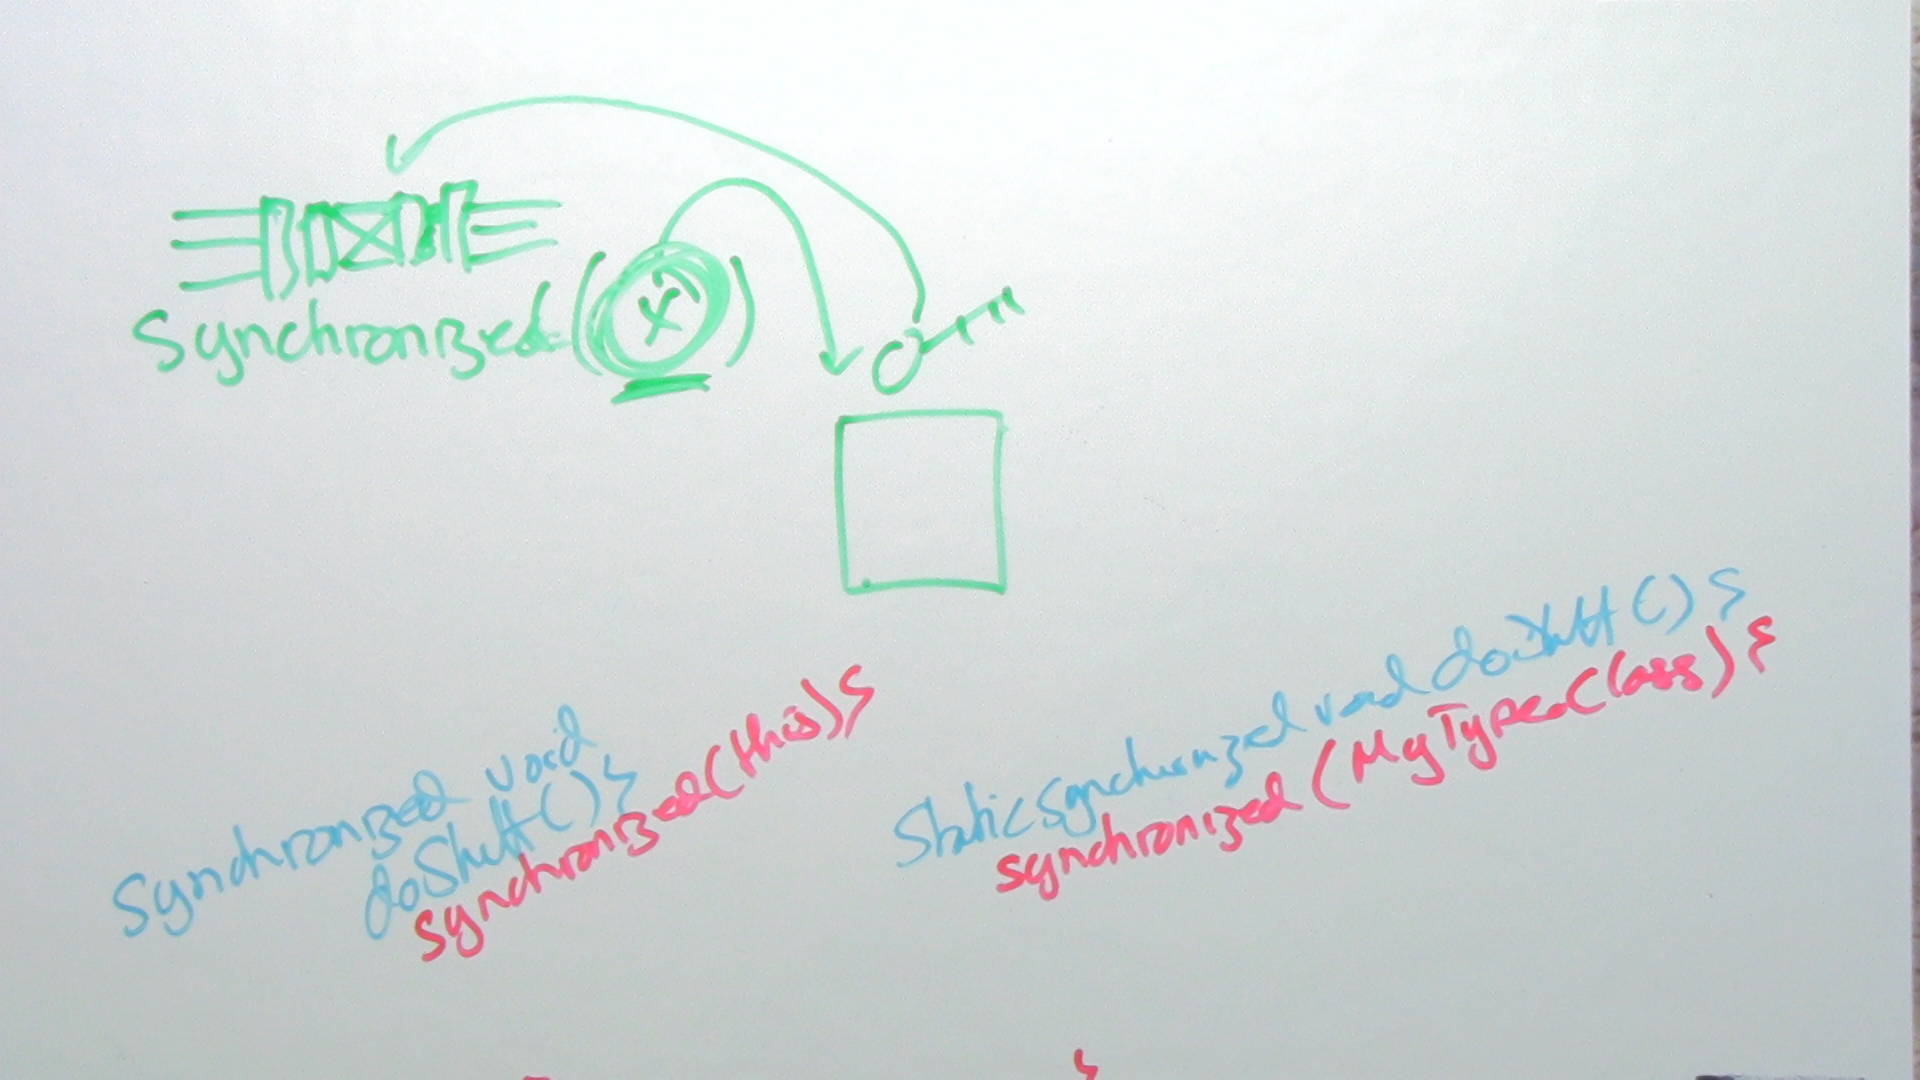 Synchronized (x)
Synchronized void
doStuff() {
synchronized(this) {
Static synchronized void doStuff() {
synchronized (MyType.class) {
}